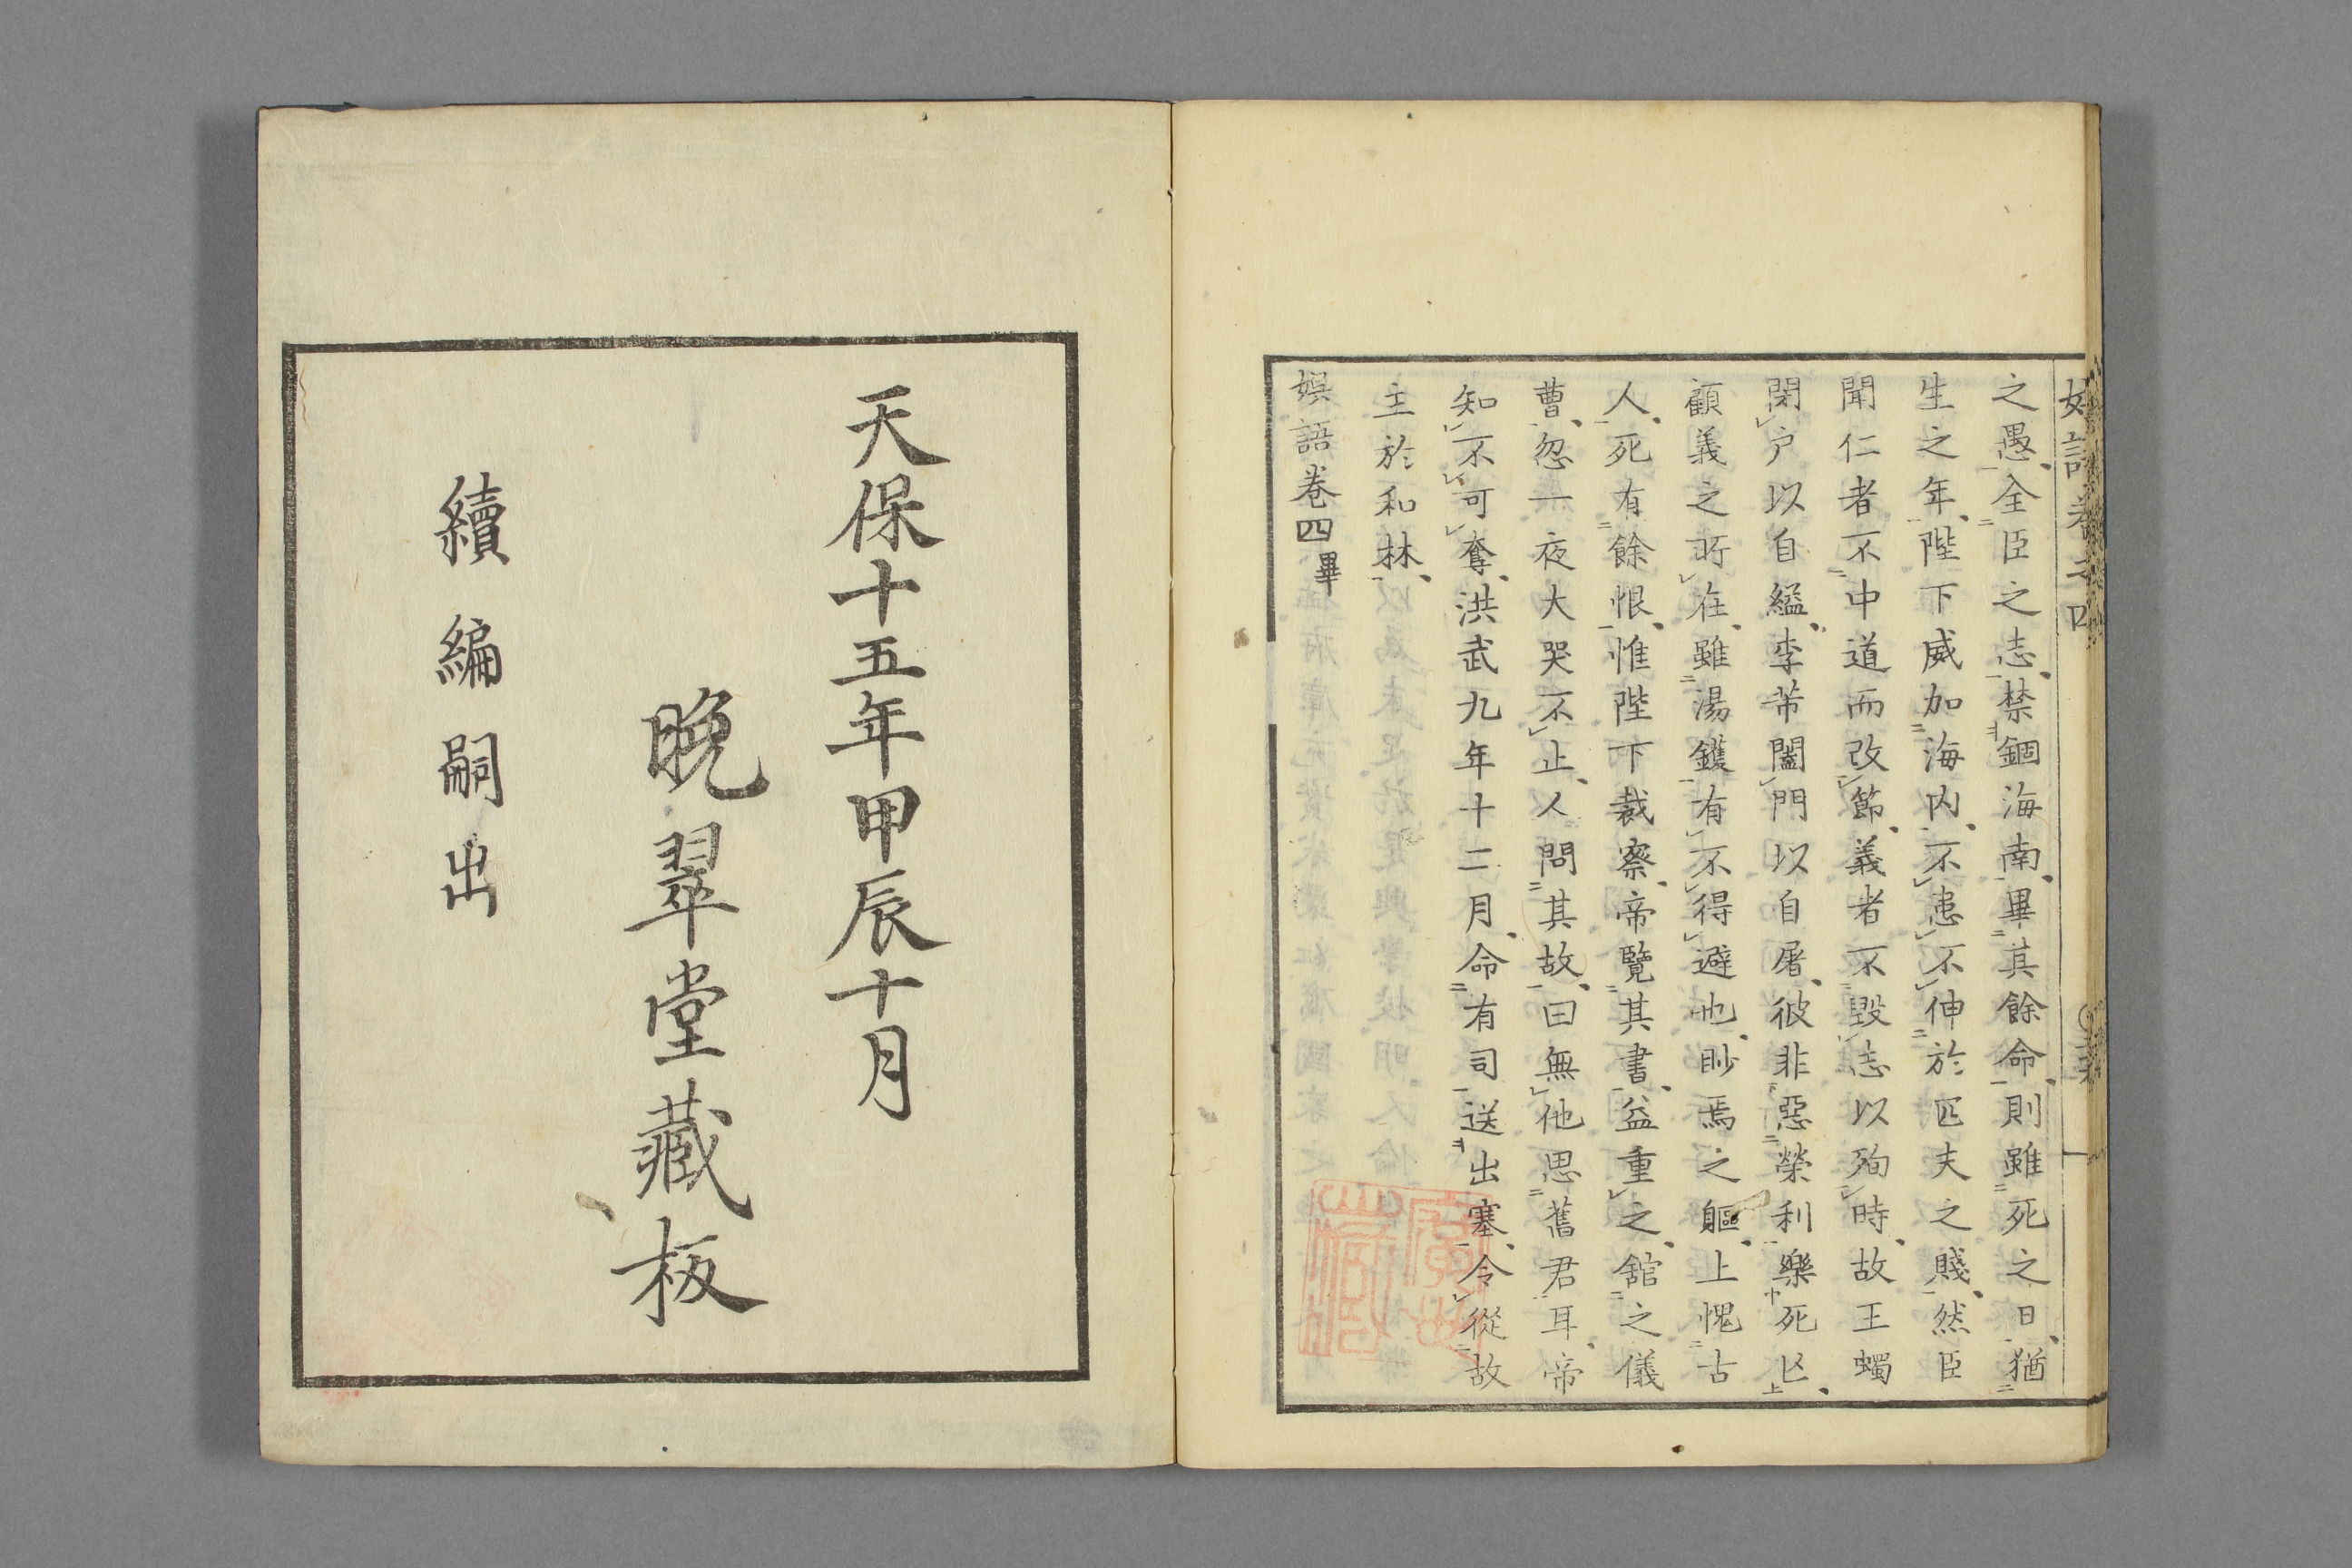 之愚全臣之志禁錮海南畢其餘命則雖死之日猶
生之年陛下威加海内不患不伸於匹夫之賤然臣
聞仁者不中道而改節義者不毀志以殉時故王蠋
閉戸以自縊李芾闔門以自屠彼非惡榮利樂死亾
顧義之所在雖湯鑊有不得避也眇焉之軀上愧古
人死有餘恨惟陛下裁察帝覽其書益重之舘之儀
曹忽一夜大哭不止人問其故曰無他思舊君耳帝
知不可奪洪武九年十二月命有司送出塞令從故
主於和林
娯語卷四畢
天保十五年甲辰十月
晩翠堂藏板
續編嗣出